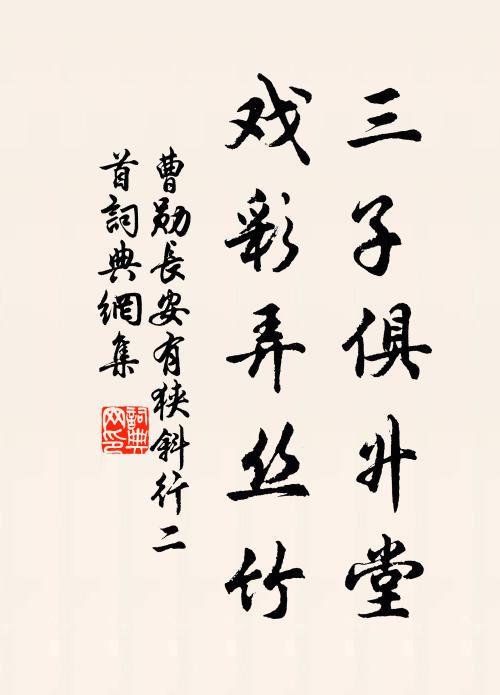 三子俱升堂
戏彩弄丝竹
曹勋长安有狭斜行二
首詞典網集
詞典網印